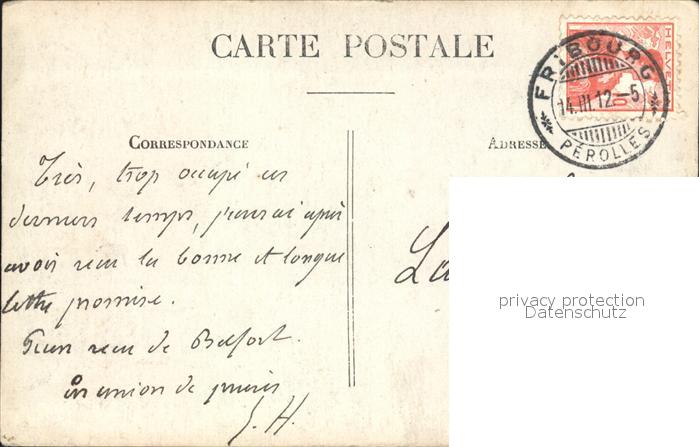 CARTE POSTALE
HELVE
FRIBOURG
14.III.12.–5
PÉROLLES
CORRESPONDANCE
ADRESSE
Très, trop occupé ces
derniers temps, j'aurai après
avoir reçu la bonne et longue
lettre promise.
reçu de Belfort.
en union de prières
J. H.
La
privacy protection
Datenschutz